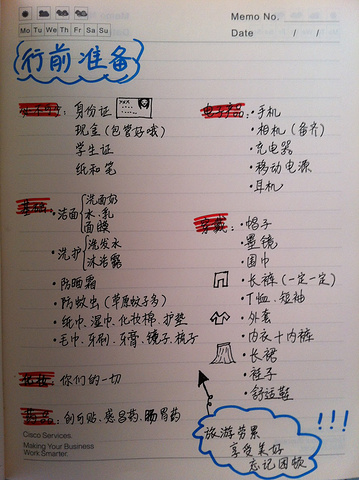 Memo No.
Mo Tu We Th Fr Sa Su
Date / /
行前准备
身份证
现金(包管好哦)
学生证
纸和笔
电子产品:
·手机
·相机(备齐)
·充电器
·移动电源
·耳机
·洁面
洗面奶
水.乳
面膜
·洗护
洗发水
沐浴露
·防晒霜
·防蚊虫(草原蚊子多)
·纸巾.湿巾.化妆棉.护垫
·毛巾.牙刷.牙膏.镜子.梳子
穿戴:
·帽子
·墨镜
·围巾
·长裤(一定一定)
·T恤.短袖
·外套
·内衣+内裤
·长裙
·袜子
·舒适鞋
你们的一切
药品:创可贴.感冒药.肠胃药
旅游劳累
享受美好
忘记困顿
!!!
Cisco Services.
Making Your Business
Work Smarter.